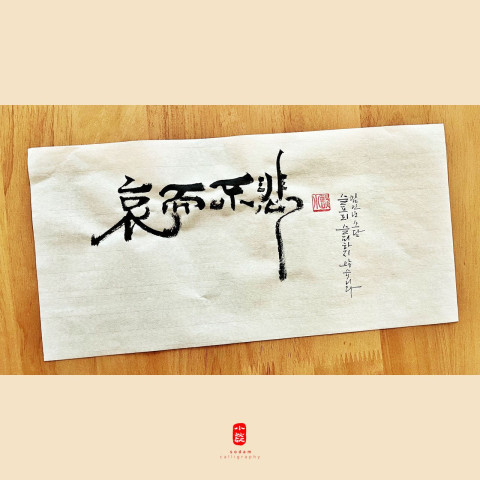 哀而不悲
슬프되 슬퍼하지 않습니다
임인년 소담
小
sodam
calligraphy